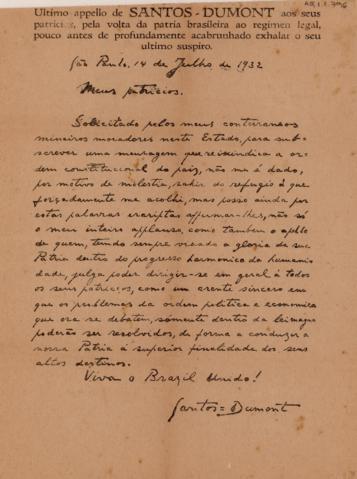 Ultimo appello de SANTOS-DUMONT aos seus
patricios, pela volta da patria brasileira ao regimen legal,
pouco antes de profundamente acabrunhado exhalar o seu
ultimo suspiro.
São Paulo, 14 de Julho de 1932
Meus patricios.
Sollicitado pelos meus conterraneos
mineiros moradores neste Estado, para sub-
screver uma mensagem que reivindica a or-
dem constitucional do paiz, não me é dado,
por motivo de molestia, sahir do refugio á que
forçadamente me acolhi, mas posso ainda por
estas palavras escriptas affirmar-lhes, não só
o meu inteiro applauso, como tambem o apello
de quem, tendo sempre visado a gloria da sua
Patria dentro do progresso harmonico da humani-
dade, julga poder dirigir-se em geral á todos
os seus patricios, como um crente sincero em
que os problemas da ordem politica e economica
que ora se debatem, somente dentro da lei magna
poderão ser resolvidos, de forma a conduzir a
nossa Patria á superior finalidade dos seus
altos destinos.
Viva o Brazil Unido!
Santos=Dumont